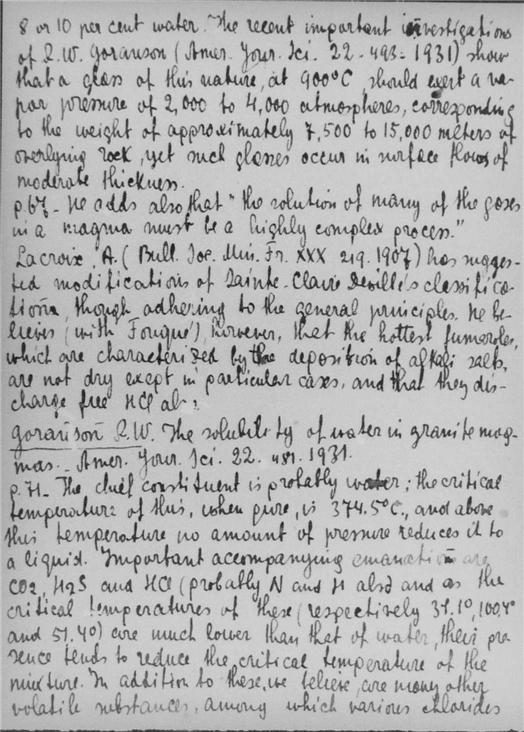 8 or 10 per cent water. The recent important investigations
of R.W. Goranson (Amer. Jour. Sci. 22 - 493 - 1931) show
that a glass of this nature, at 900°C, should exert a va-
por pressure of 2,000 to 4,000 atmospheres, corresponding
to the weight of approximately 7,500 to 15,000 meters of
overlying rock, yet such glasses occur in surface flows of
moderate thickness.
p.67 - He adds also that "the solution of many of the gases
in a magma must be a highly complex process."
Lacroix, A. (Bull. Soc. Min. Fr. XXX 219. 1907) has sugges-
ted modifications of Sainte-Claire Deville's classifica-
tion, though adhering to the general principles. He be-
lieves (with Fouqué), however, that the hottest fumeroles,
which are characterized by the deposition of alkali salts,
are not dry exept in particular cases, and that they dis-
charge free HCl al
Goranson R.W. The solubility of water in granite mag-
mas. - Amer. Jour. Sci. 22. 481. 1931.
p.71 - The chief constituent is probably water; the critical
temperature of this, when pure, is 374.5°C, and above
this temperature no amount of pressure reduces it to
a liquid. Important accompanying emanation are
CO2, H2S and HCl (probably N and H also) and as the
critical temperatures of these (respectively 31.1°, 100.4°
and 51.4°) are much lower than that of water, their pre
sence tends to reduce the critical temperature of the
mixture. In addition to these, we believe, are many other
volatile substances, among which various chlorides